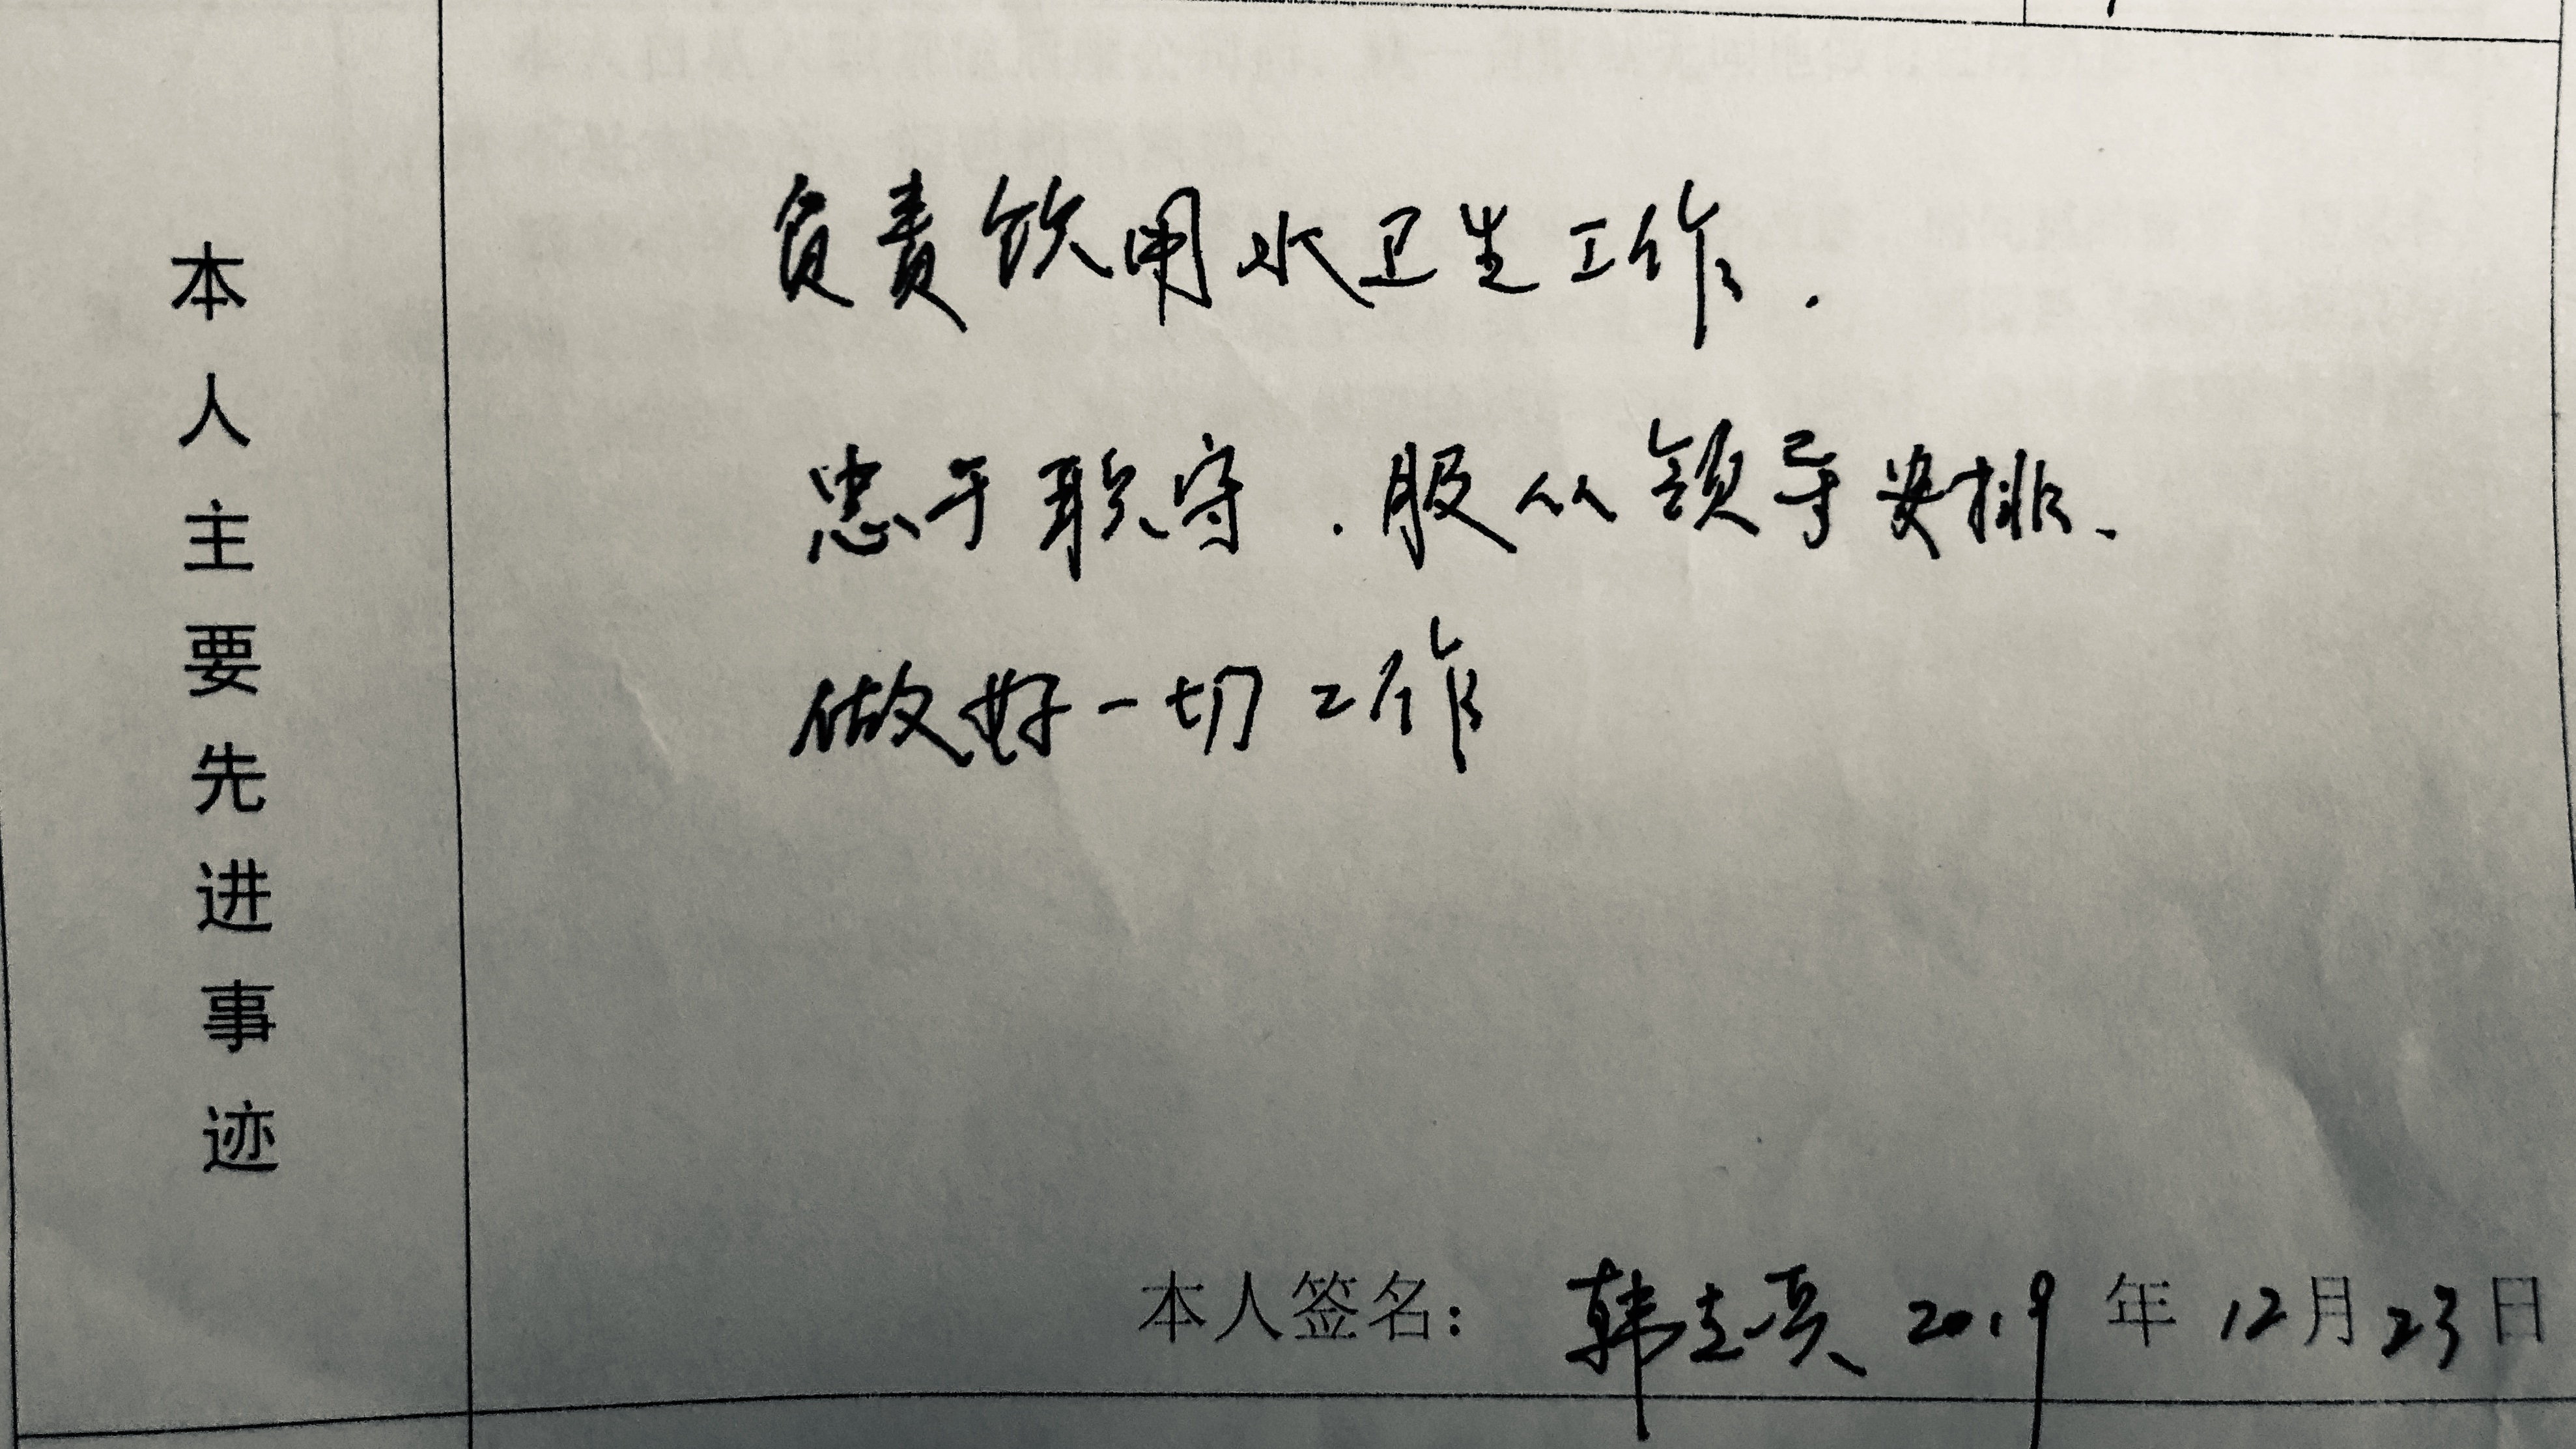 本人主要先进事迹
负责饮用水卫生工作.
忠于职守.服从领导安排、
做好一切工作
本人签名: 韩 2019年12月23日